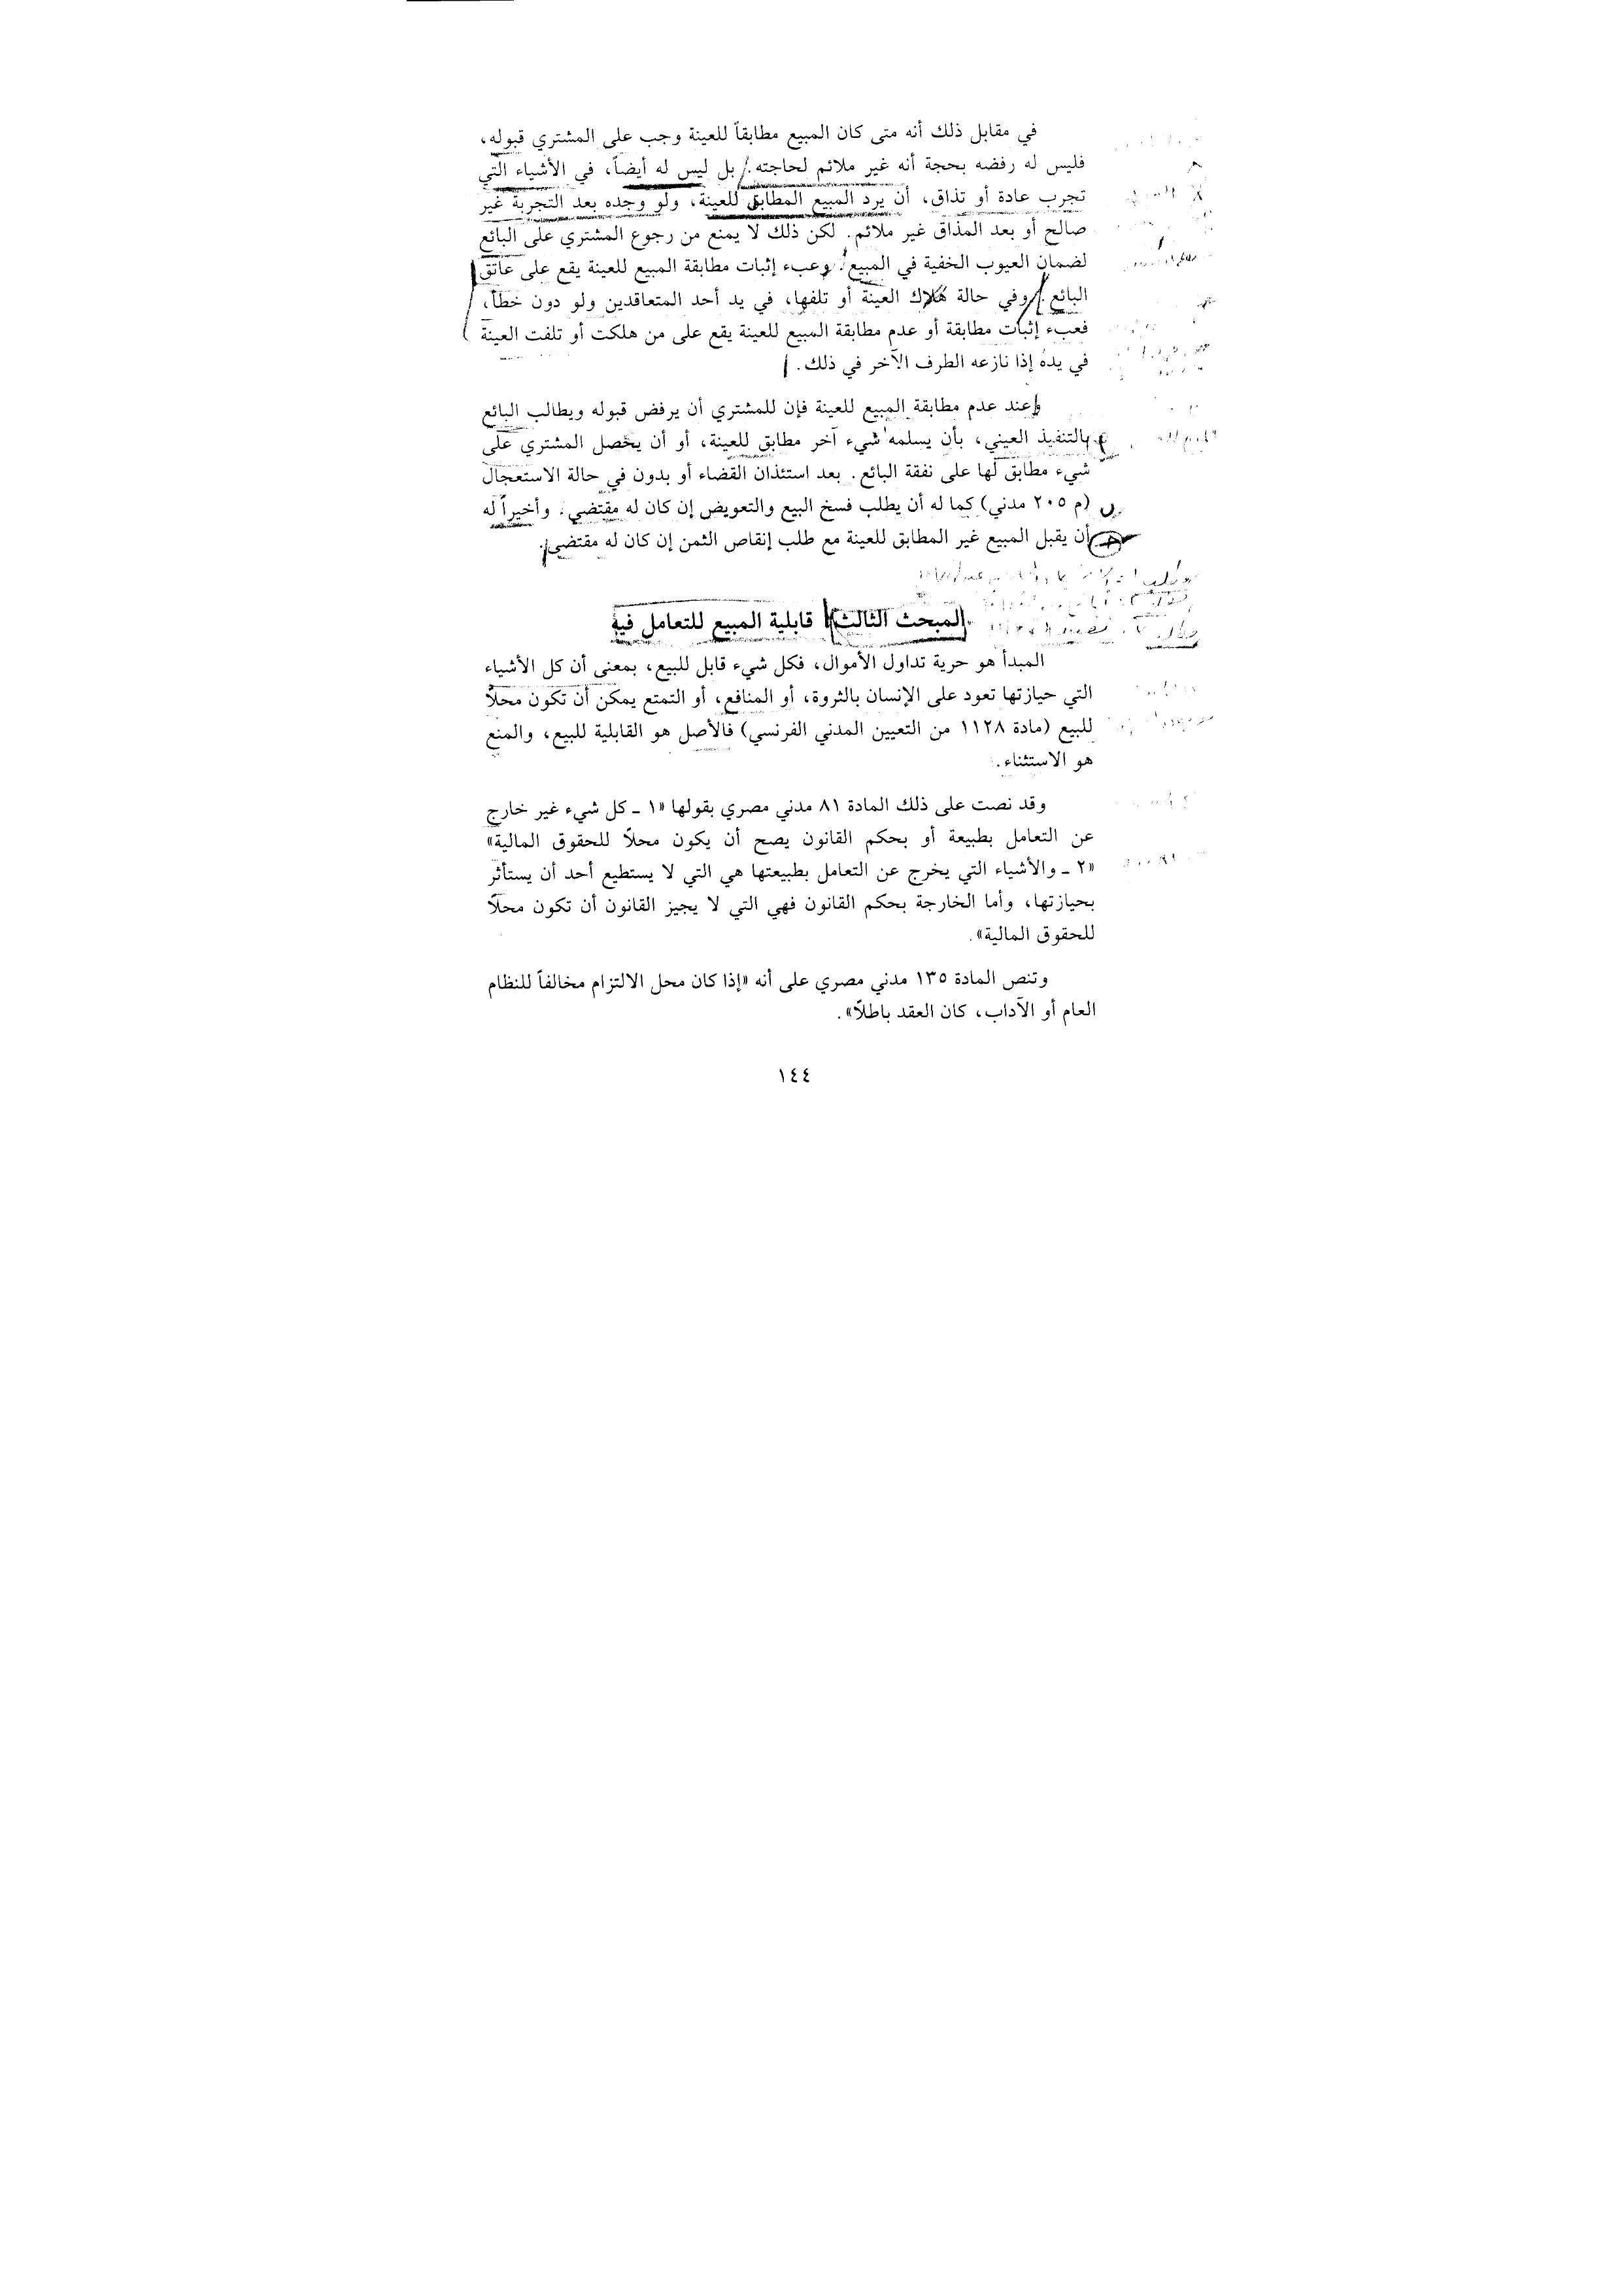 في مقابل ذلك أنه متى كان المبيع مطابقاً للعينة وجب على المشتري قبوله،
فليس له رفضه بحجة أنه غير ملائم لحاجته. بل ليس له أيضاً، في الأشياء التي
تجرب عادة أو تذاق، أن يرد المبيع المطابق للعينة، ولو وجده بعد التجربة غير
صالح أو بعد المذاق غير ملائم. لكن ذلك لا يمنع من رجوع المشتري على البائع
لضمان العيوب الخفية في المبيع. وعبء إثبات مطابقة المبيع للعينة يقع على عاتق
البائع. وفي حالة هلاك العينة أو تلفها، في يد أحد المتعاقدين ولو دون خطأ،
فعبء إثبات مطابقة أو عدم مطابقة المبيع للعينة يقع على من هلكت أو تلفت العينة
في يده إذا نازعه الطرف الآخر في ذلك.
وعند عدم مطابقة المبيع للعينة فإن للمشتري أن يرفض قبوله ويطالب البائع
بالتنفيذ العيني، بأن يسلمه شيء آخر مطابق للعينة، أو أن يحصل المشتري على
شيء مطابق لها على نفقة البائع. بعد استئذان القضاء أو بدون في حالة الاستعجال
(م ٢٠٥ مدني) كما له أن يطلب فسخ البيع والتعويض إن كان له مقتضي. وأخيراً له
أن يقبل المبيع غير المطابق للعينة مع طلب إنقاص الثمن إن كان له مقتضي.
المبحث الثالث قابلية المبيع للتعامل فيه
المبدأ هو حرية تداول الأموال، فكل شيء قابل للبيع، بمعنى أن كل الأشياء
التي حيازتها تعود على الإنسان بالثروة، أو المنافع، أو التمتع يمكن أن تكون محلاً
للبيع (مادة ١١٢٨ من التعيين المدني الفرنسي) فالأصل هو القابلية للبيع، والمنع
هو الاستثناء.
وقد نصت على ذلك المادة ٨١ مدني مصري بقولها «١ ـ كل شيء غير خارج
عن التعامل بطبيعة أو بحكم القانون يصح أن يكون محلاً للحقوق المالية»
«٢ ـ والأشياء التي يخرج عن التعامل بطبيعتها هي التي لا يستطيع أحد أن يستأثر
بحيازتها، وأما الخارجة بحكم القانون فهي التي لا يجيز القانون أن تكون محلاً
للحقوق المالية».
وتنص المادة ١٣٥ مدني مصري على أنه «إذا كان محل الالتزام مخالفاً للنظام
العام أو الآداب، كان العقد باطلاً».
١٤٤